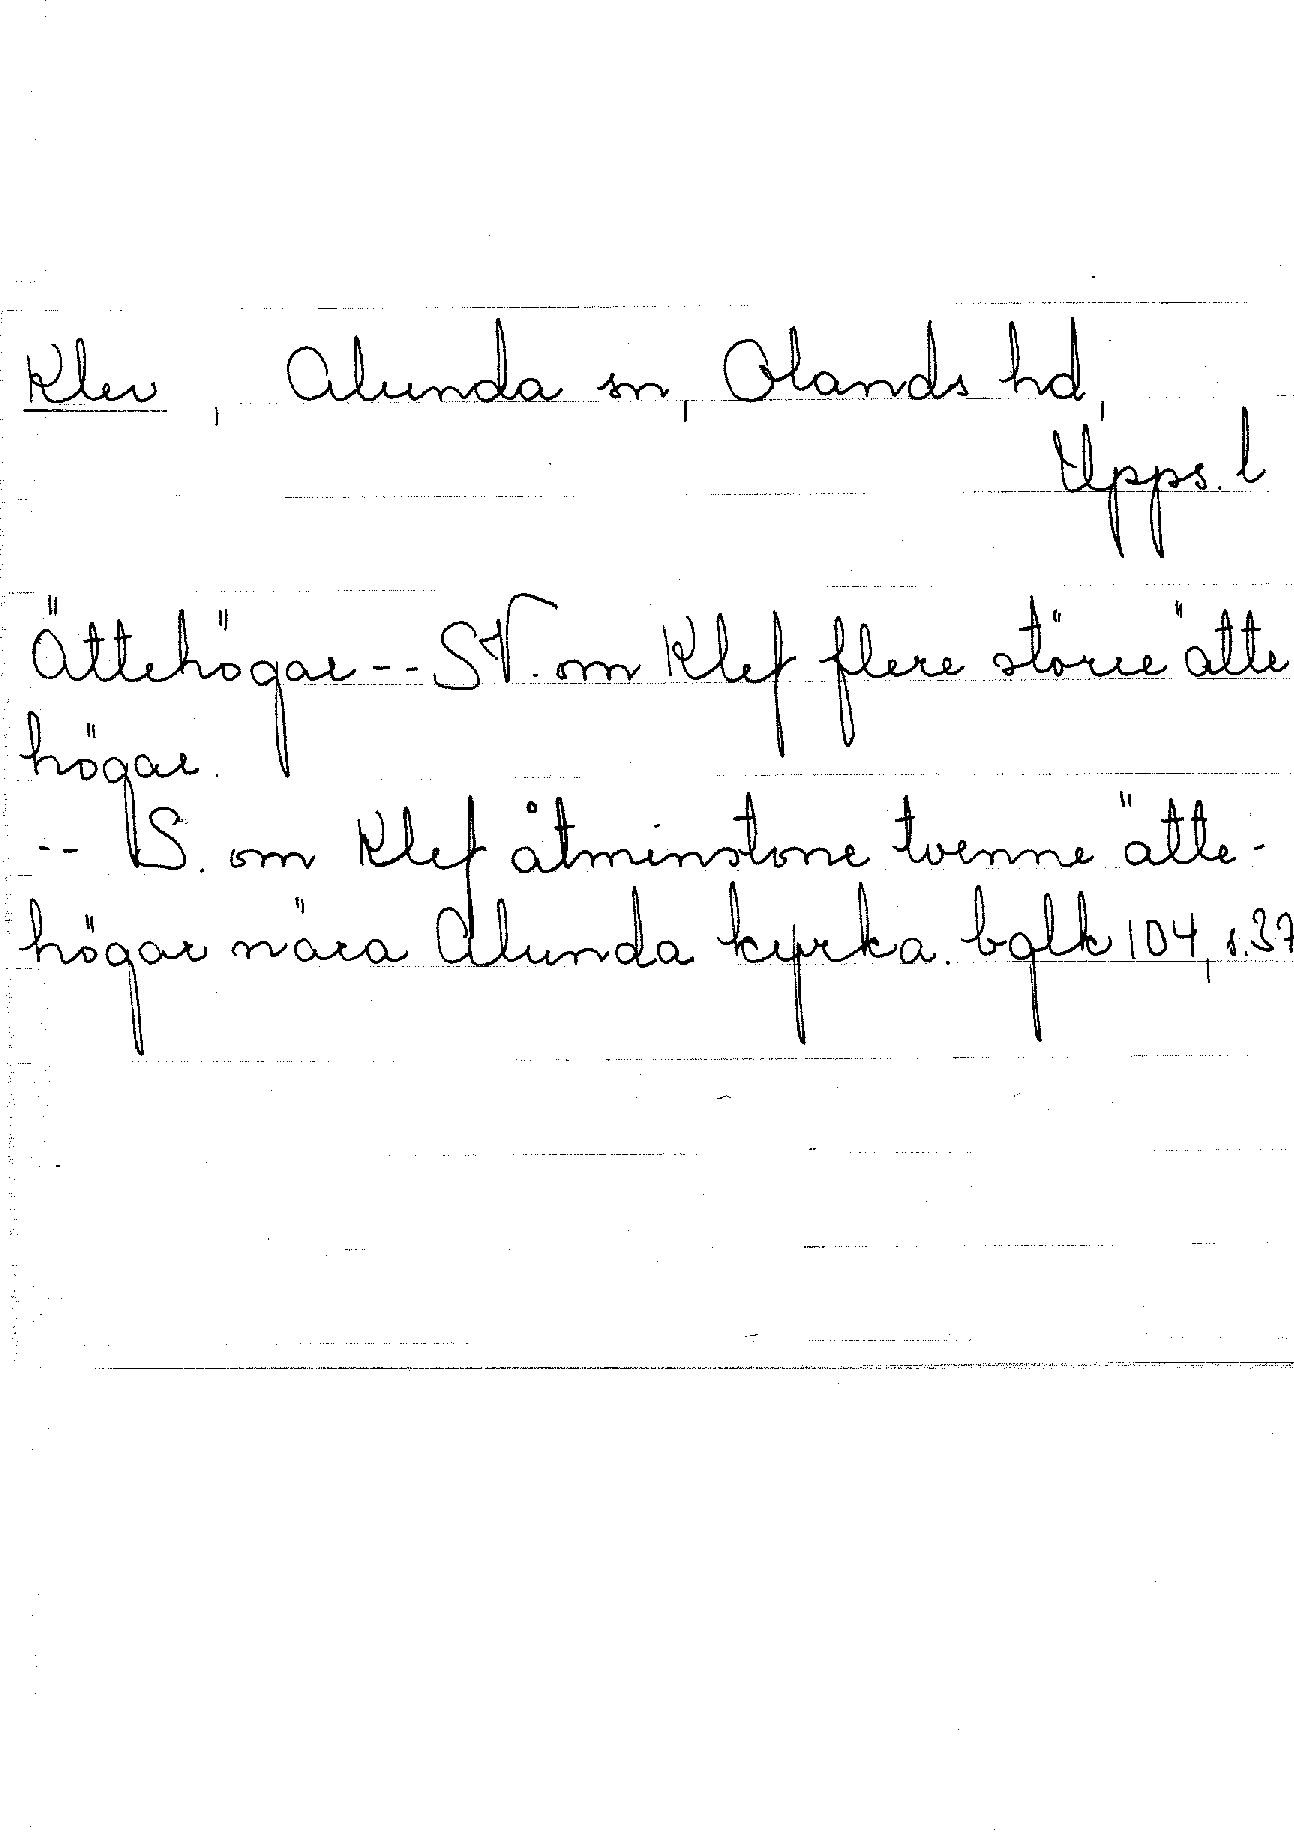 Klev, Alunda sn, Olands hd,
Upps. l
Ättehögar -- SV. om Klef flere större ätte
högar.
-- S. om Klef åtminstone tvenne ätte-
högar nära Alunda kyrka. bglk 104, s.37